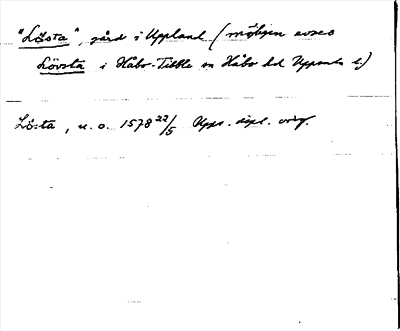 "Lösta", gård i Uppland (möjligen avses
Lövsta i Håbo-Tibble sn Håbo hd Uppsala l.)
Lösta, u. o. 1578 22/5 Upps. dipl. orig.